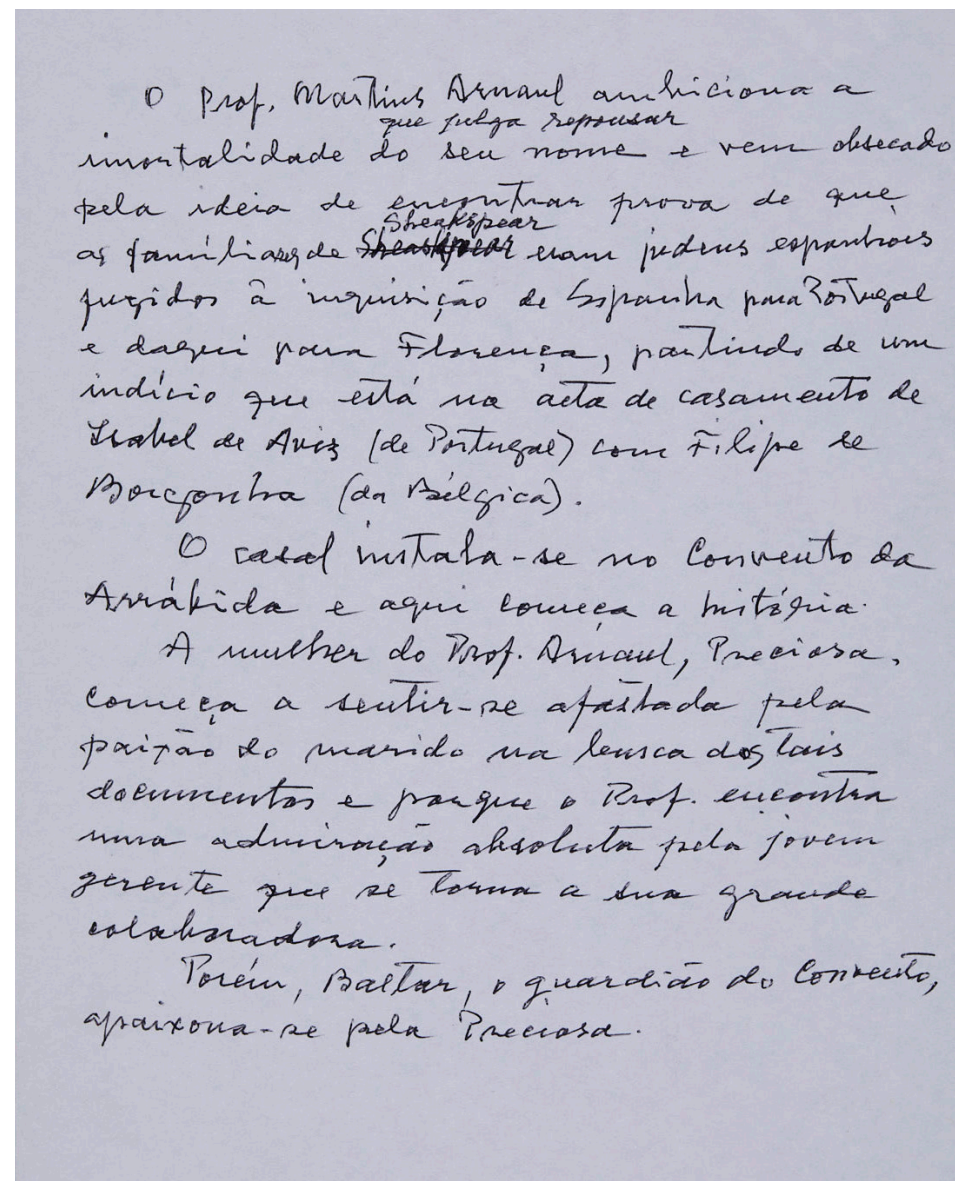 O Prof. Martins Arnaul ambiciona a
que julga repousar
imortalidade do seu nome e vem obsecado
pela ideia de encontrar prova de que
Sheakspear
as famílias de Sheaskpear eram judeus espanhois
fugidos à inquisição de Espanha para Portugal
e daqui para Florença, partindo de um
indício que está na acta de casamento de
Isabel de Aviz (de Portugal) com Filipe de
Borgonha (da Bélgica).
O casal instala-se no Convento da
Arrábida e aqui começa a história.
A mulher do Prof. Arnaul, Preciosa,
começa a sentir-se afastada pela
paixão do marido na busca dos tais
documentos e porque o Prof. encontra
uma admiração absoluta pela jovem
gerente que se torna a sua grande
colaboradora.
Porém, Baltar, o guardião do Convento,
apaixona-se pela Preciosa.